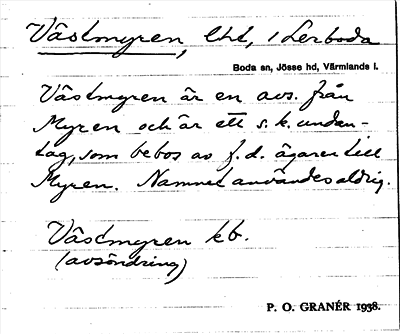 Västmyren, lht, i Lerboda
Boda sn, Jösse hd, Värmlands l.
Västmyren är en avs. från
Myren och är ett s. k. undan-
tag, som bebos av f. d. ägaren till
Myren. Namnet användes aldrig.
Västmyren kb.
(avsöndring)
P. O. GRANÉR 1938.